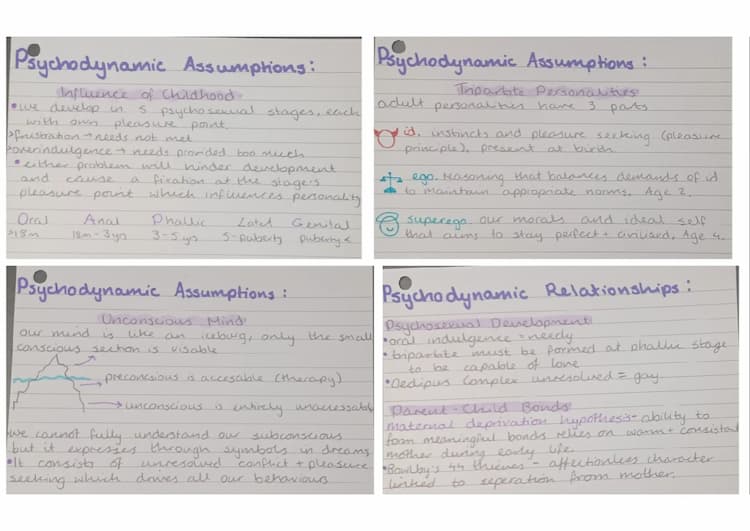 Psychodynamic Assumptions:
Influence of Childhood
•we develop in 5 psychosexual stages, each
with own pleasure point.
>frustration → needs not met
>overindulgence → needs provided too much
• either problem will hinder development
and cause a fixation at the stage's
pleasure point which influences personality
Oral Anal Phallic Latent Genital
>18m 18m-3yrs 3-5 yrs 5-puberty puberty<
Psychodynamic Assumptions:
Tripartite Personalities
adult personalities have 3 parts
id. instincts and pleasure seeking (pleasure
principle), present at birth
ego. Reasoning that balances demands of id
to maintain appropriate norms. Age 2.
superego. our morals and ideal self
that aims to stay perfect + civilised. Age 4.
Psychodynamic Assumptions:
Unconscious Mind
our mind is like an iceburg, only the small
conscious section is visable
preconcsious is accesable (therapy)
unconscious is entirely unaccessable
•we cannot fully understand our subconscious
but it expresses through symbols in dreams
•It consists of unresolved conflict + pleasure
seeking which drives all our behaviours
Psychodynamic Relationships:
Psychosexual Development
•oral indulgence = needy
•tripartite must be formed at phallic stage
to be capable of love
•Oedipus Complex unresolved = gay
Parent-Child Bonds
maternal deprivation hypothesis- ability to
form meaningful bonds relies on warm + consistant
mother during early life.
•Bowlby's 44 thieves - affectionless character
linked to seperation from mother.